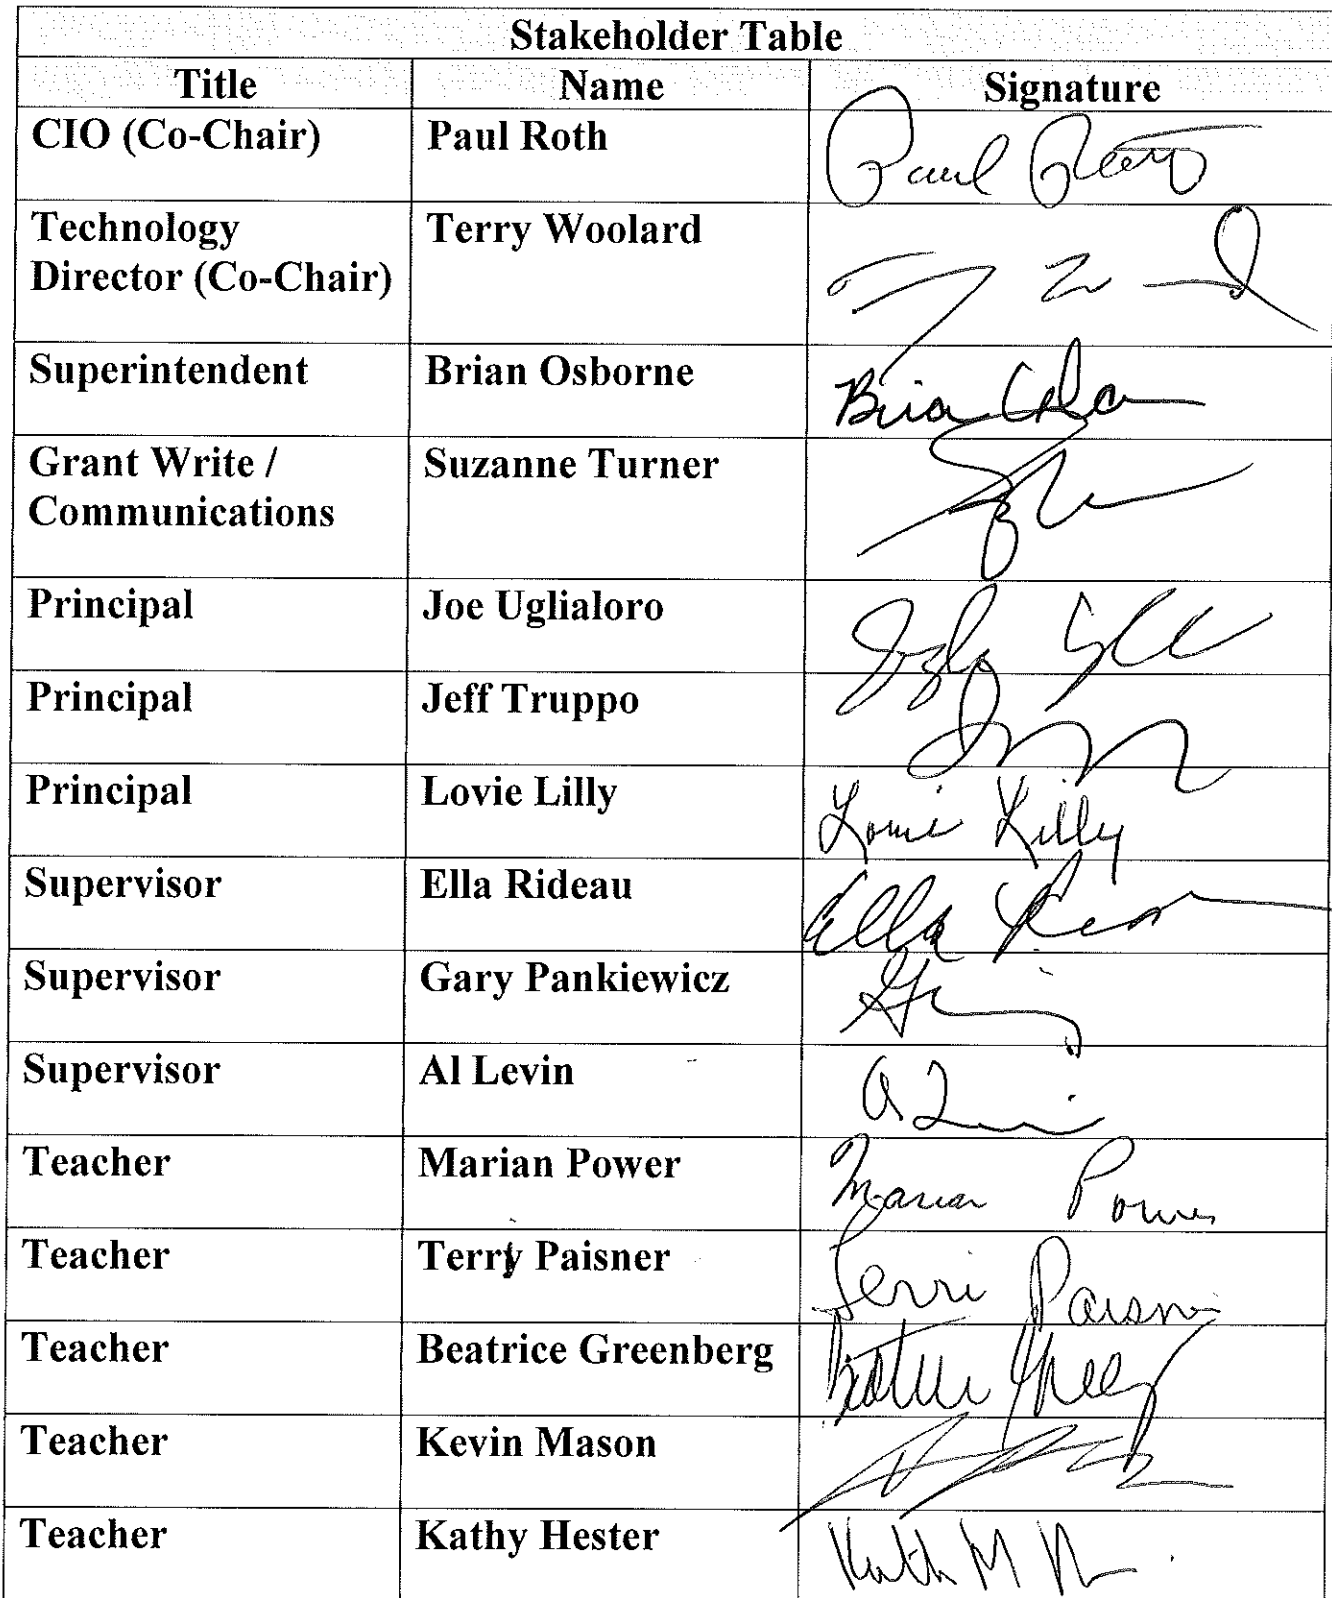 Stakeholder Table
Title Name Signature
CIO (Co-Chair) Paul Roth Paul Roth
Technology Terry Woolard
Director (Co-Chair)
Superintendent Brian Osborne Brian
Grant Write / Suzanne Turner
Communications
Principal Joe Uglialoro
Principal Jeff Truppo
Principal Lovie Lilly Lovie Lilly
Supervisor Ella Rideau Ella
Supervisor Gary Pankiewicz
Supervisor Al Levin
Teacher Marian Power Marian Power
Teacher Terry Paisner Terri Paisner
Teacher Beatrice Greenberg
Teacher Kevin Mason
Teacher Kathy Hester